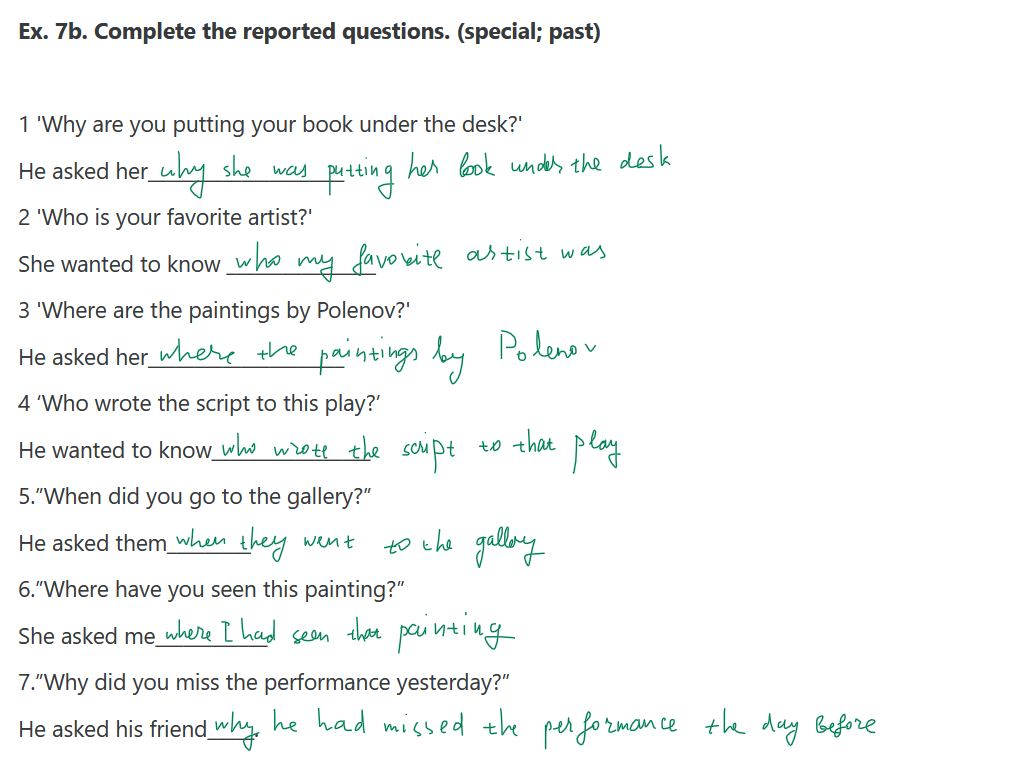 Ex. 7b. Complete the reported questions. (special; past)
1 'Why are you putting your book under the desk?'
He asked her why she was putting her book under the desk
2 'Who is your favorite artist?'
She wanted to know who my favorite artist was
3 'Where are the paintings by Polenov?'
He asked her where the paintings by Polenov
4 ‘Who wrote the script to this play?’
He wanted to know who wrote the script to that play
5.”When did you go to the gallery?”
He asked them when they went to the gallery
6.”Where have you seen this painting?”
She asked me where I had seen that painting
7.”Why did you miss the performance yesterday?”
He asked his friend why he had missed the performance the day before